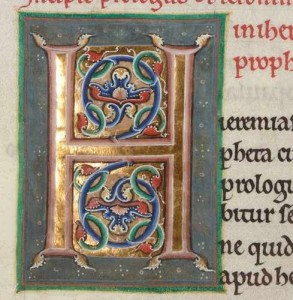 Incipit prologus
in ihere
proph
H
ieremias
pheta cu
prologu
bitur se
ne quid
apud he